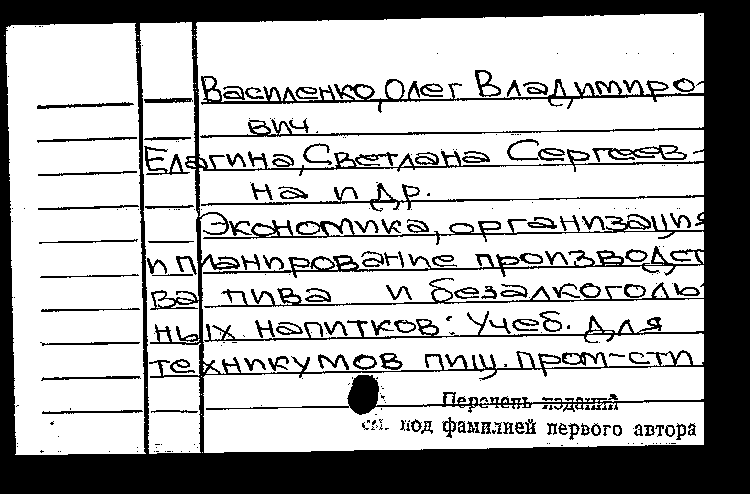 Василенко, Олег Владимиро-
вич.
Елагина, Светлана Сергеев-
на и др.
Экономика, организация
и планирование производст-
ва пива и безалкоголь-
ных напитков: Учеб. для
техникумов пищ. пром-сти.
Перечень изданий
см. под фамилией первого автора